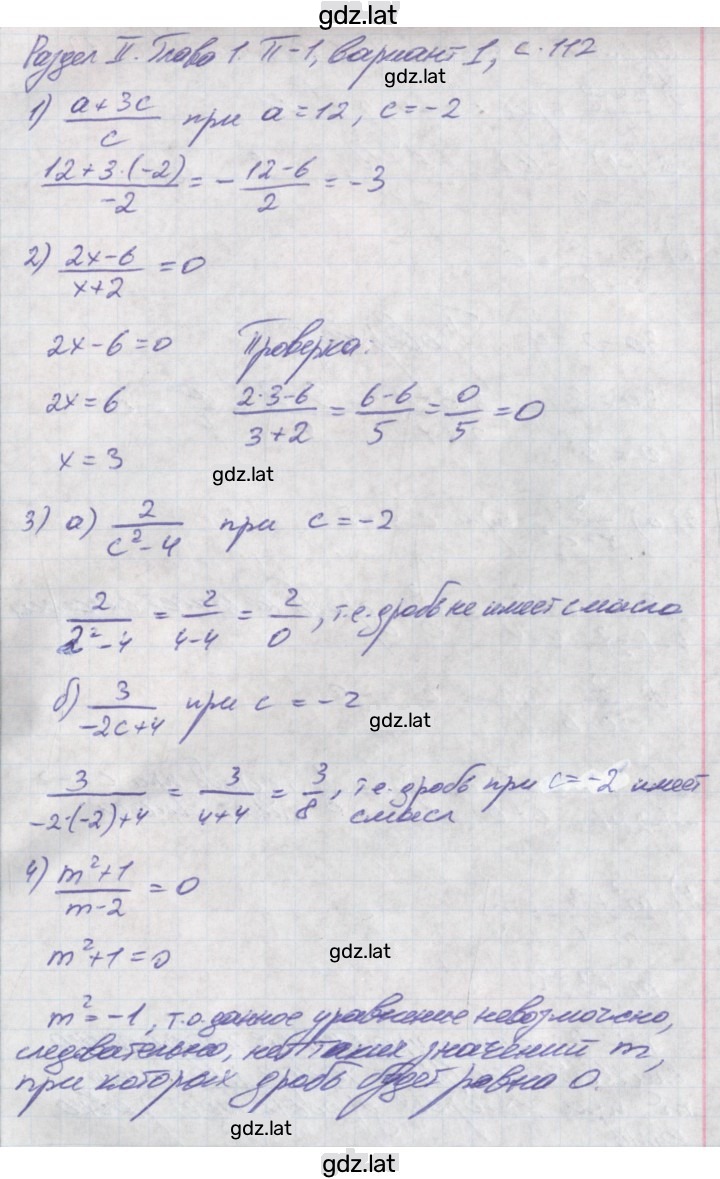 gdz.lat
Раздел II. Глава 1. П-1, Вариант I, с. 112
gdz.lat
1) (a+3c)/c при a=12, c=-2
(12+3·(-2))/-2 = -(12-6)/2 = -3
2) (2x-6)/(x+2) = 0
gdz.lat
2x-6=0 Проверка.
2x=6 (2·3-6)/(3+2) = (6-6)/5 = 0/5 = 0
x=3
gdz.lat
3) а) 2/(c²-4) при c=-2
2/(2²-4) = 2/(4-4) = 2/0, т.е. дробь не имеет смысла
б) 3/(-2c+4) при c=-2
gdz.lat
3/(-2·(-2)+4) = 3/(4+4) = 3/8, т.е. дробь при c=-2 имеет
смысл
4) (m²+1)/(m-2) = 0
m²+1=0
gdz.lat
m²=-1, т.о. данное уравнение невозможно,
следовательно, нет таких значений m,
при которых дробь будет равна 0.
gdz.lat
gdz.lat